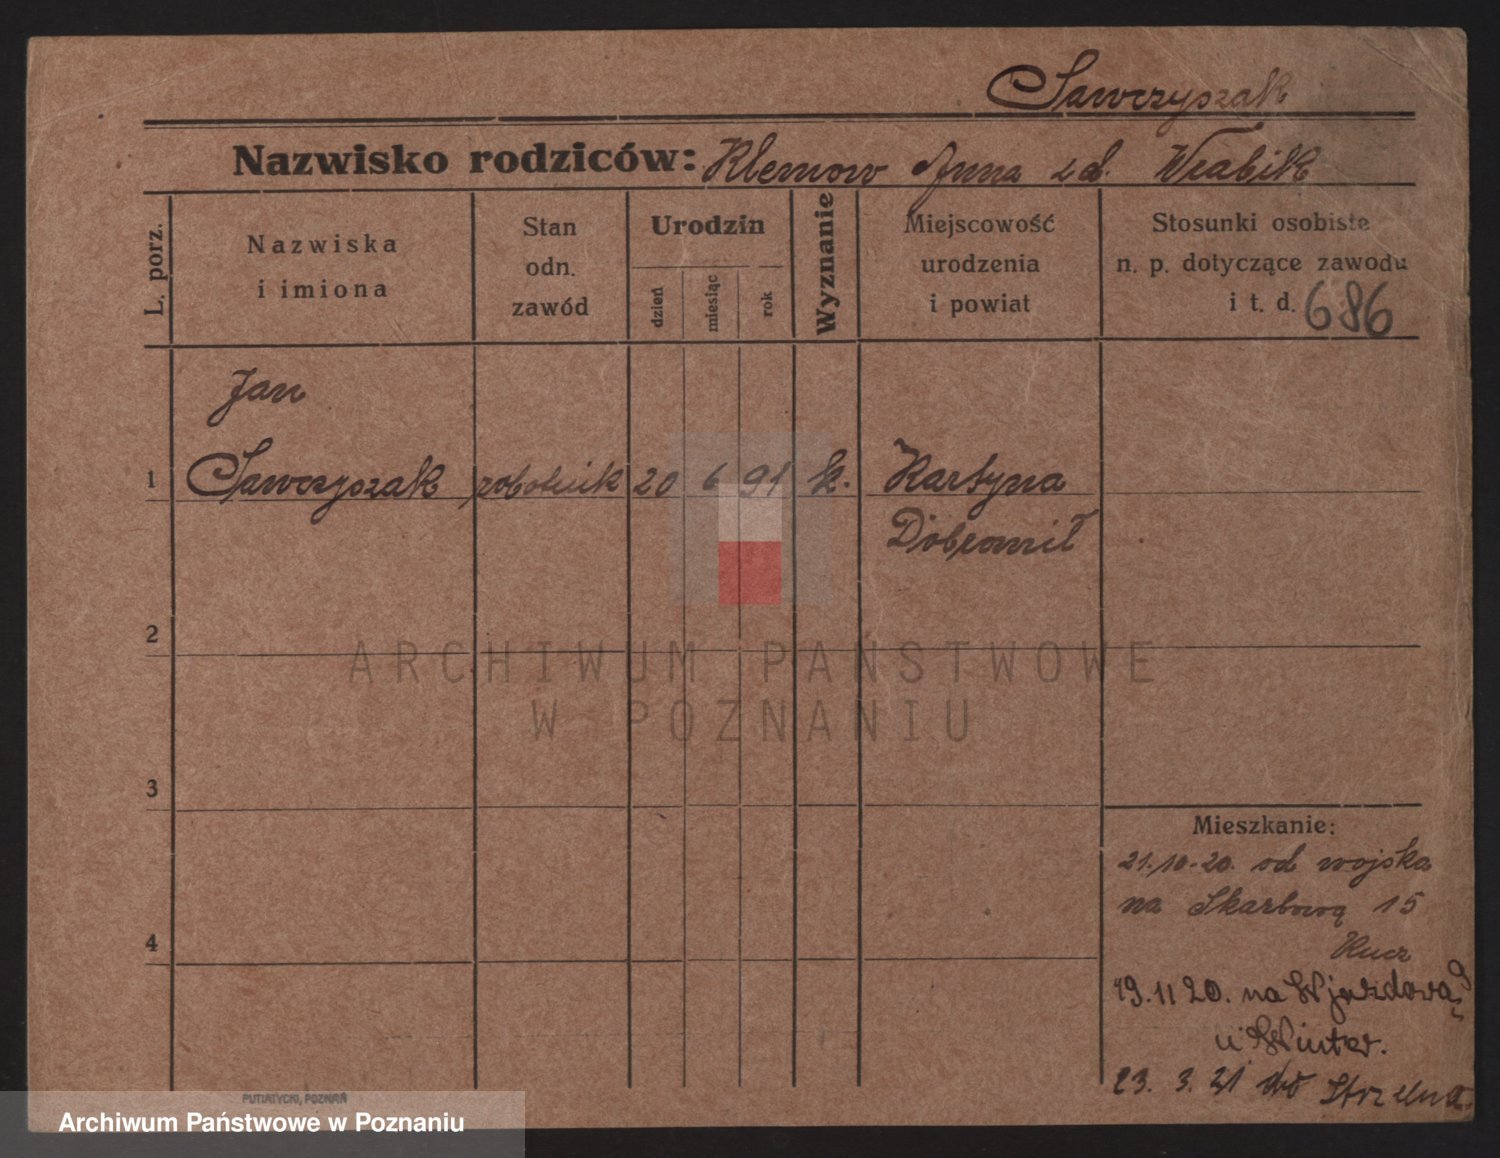 Sawczyszak
Nazwisko rodziców: Klemow Anna zd. Wrabik
L. porz.
Nazwiska
i imiona
Stan
odn.
zawód
Urodzin
dzień
miesiąc
rok
Wyznanie
Miejscowość
urodzenia
i powiat
Stosunki osobiste
n. p. dotyczące zawodu
i t. d. 686
Jan
1 Sawczyszak robotnik 20 6 91 k. Kartyna
Dobromil
2
ARCHIWUM PAŃSTWOWE
W POZNANIU
3
Mieszkanie:
21.10.20. od wojska
na Skarbową 15
4
19.11 20. na Wjazdową 9
u Winter.
23. 3. 21 do Strzelna.
PUTIATYCKI, POZNAŃ
Archiwum Państwowe w Poznaniu